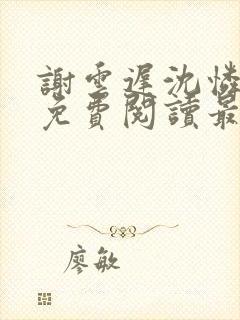 謝雲遲沈憐
免費閱讀最
廖敏